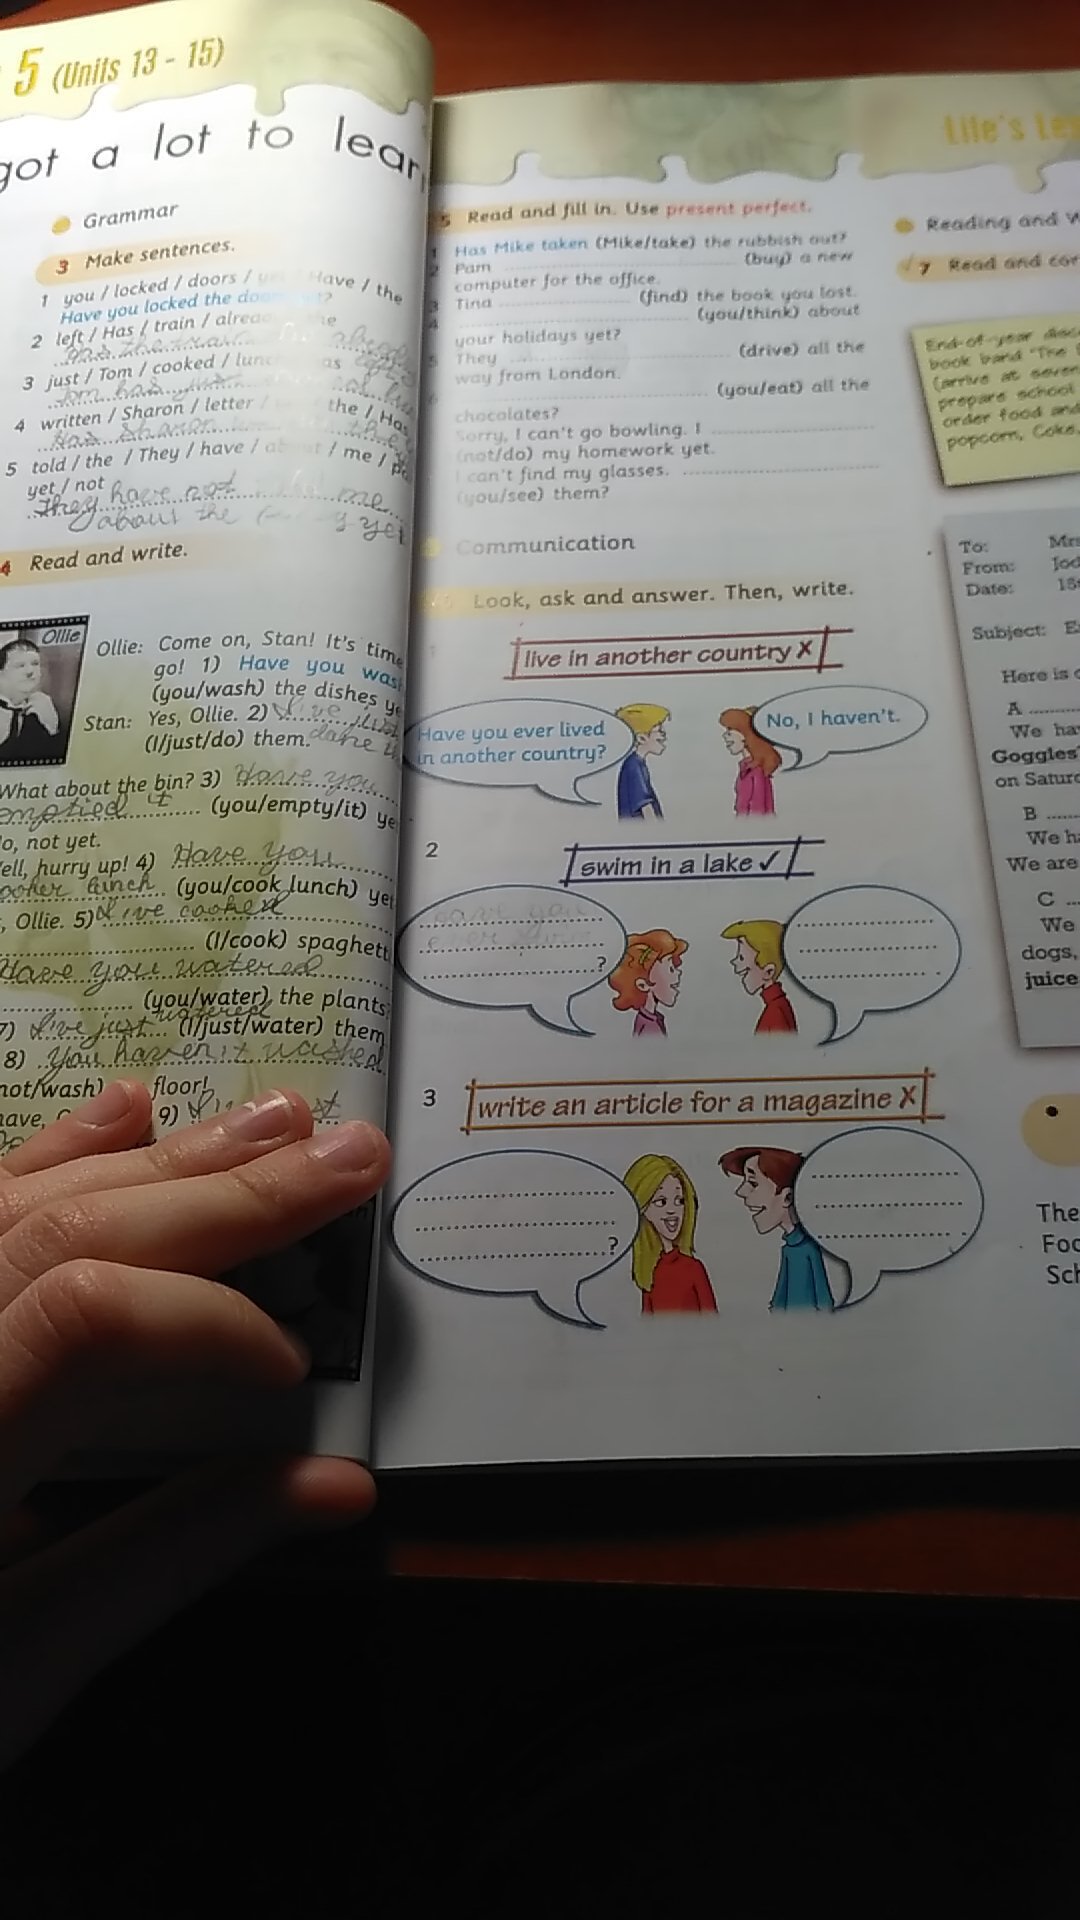 5 (Units 13 - 15)
got a lot to lear
Grammar
3 Make sentences.
1 you / locked / doors / Have / the
Have you locked the
2 left / Has / train /
3 just / Tom / cooked /
4 written / Sharon / letter / the / Has
Has Sharon
5 told / the / They / have / / me /
yet / not
They have not me
about the yet
4 Read and write.
Ollie
Ollie: Come on, Stan! It's time
go! 1) Have you was
(you/wash) the dishes ye
Stan: Yes, Ollie. 2) I've just
(I/just/do) them. done
What about the bin? 3) Have you
emptied it (you/empty/it) ye
o, not yet.
ell, hurry up! 4) Have you
lunch (you/cook lunch) yet
, Ollie. 5) I've cooked
(I/cook) spaghett
Have you watered
(you/water) the plants
watered
7) I've just (I/just/water) them
8) You haven't washed
not/wash) floor!
ave, 9)
Life's Le
5 Read and fill in. Use present perfect.
1 Has Mike taken (Mike/take) the rubbish out?
2 Pam (buy) a new
computer for the office.
3 Tina (find) the book you lost.
4 (you/think) about
your holidays yet?
5 They (drive) all the
way from London.
6 (you/eat) all the
chocolates?
Sorry, I can't go bowling. I
(not/do) my homework yet.
I can't find my glasses.
(you/see) them?
Communication
Look, ask and answer. Then, write.
live in another country X
Have you ever lived
in another country?
No, I haven't.
2
swim in a lake ✓
have you
ever
?
3
write an article for a magazine X
?
Reading and W
7 Read and cor
End-of-year disc
book band 'The
(arrive at seven
prepare school
order food and
popcorn, Coke,
To: Mrs
From: Jod
Date: 18
Subject: E
Here is
A
We ha
Goggles'
on Saturd
B
We h
We are
C
We
dogs,
juice
The
Foo
Sch